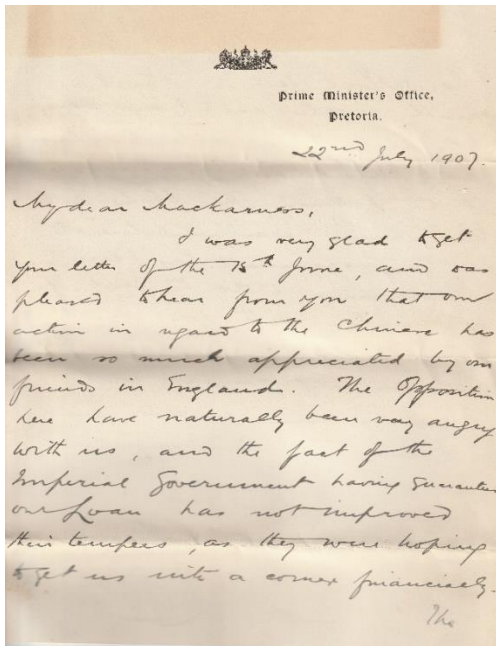 Prime Minister's Office,
Pretoria.
22nd July 1907.
My dear Mackarness,
I was very glad to get
your letter of the 15th June, and was
pleased to hear from you that our
action in regard to the Chinese has
been so much appreciated by our
friends in England. The Opposition
here have naturally been very angry
with us, and the fact of the
Imperial Government having guarantee
our Loan has not improved
their tempers, as they were hoping
to get us into a corner financially.
The